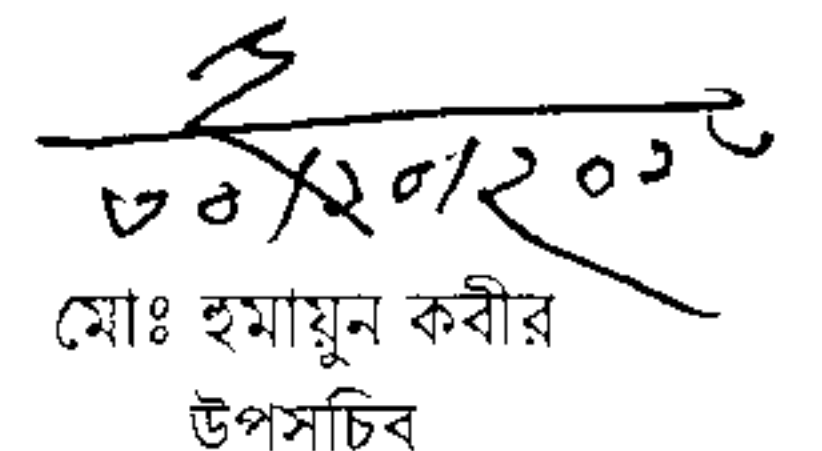 ৩০/১০/২০১
মোঃ হুমায়ুন কবীর
উপসচিব